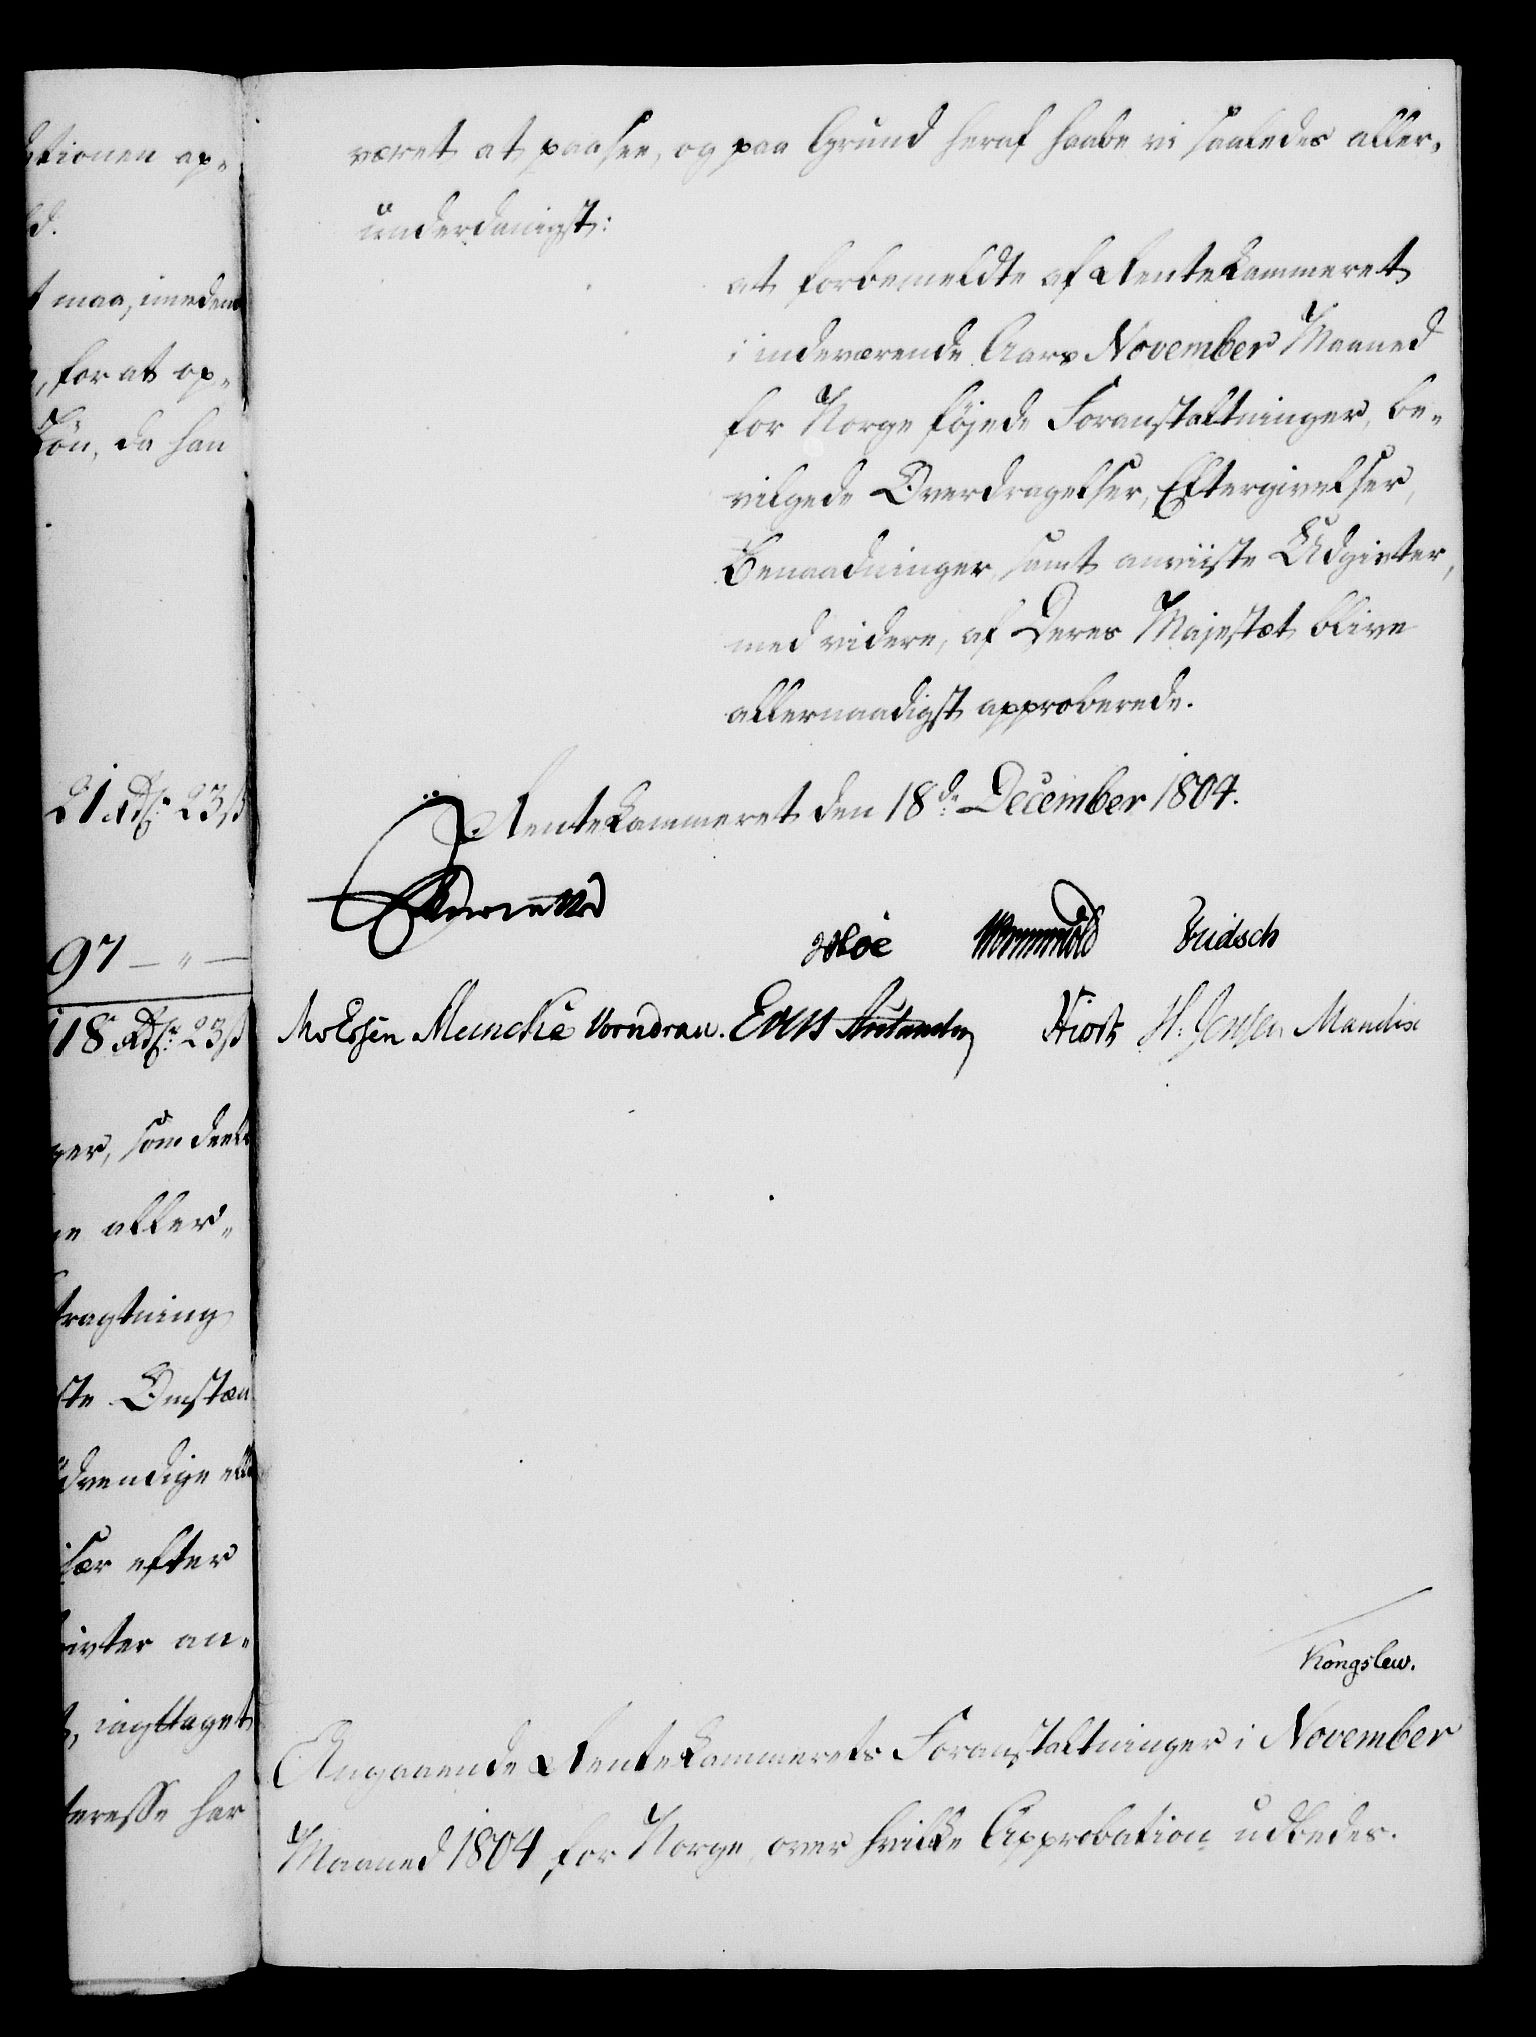 ktionen ap-
ld.
t maa, imedens
, for at op-
Søn, da han
21 Rdr. 23 ß
97 — " —
118 Rdr. 23 ß
ger, som deels
ne aller-
tragtning
ste Omstæn
ödvendige
især efter
givter an-
t, iagttaget
teresse har
været at paasee, og paa Grund heraf haabe vi saaledes aller-
underdanigst:
at forbemeldte af Rentekammeret
i indeværende Aars November Maaned
for Norge föjede Foranstaltninger, be-
vilgede Overdragelser, Eftergivelser,
Benaadninger, samt anviiste Udgivter,
med videre, af Deres Majestæt blive
allernaadigst approberede.
Rentekammeret den 18de December 1804.
Reventlow
Wormskiold Fridsch
MvEssen Muncke Vorndran. H. Jensen Mandix
Kongslew.
Angaaende Rentekammerets Foranstaltninger i November
Maaned 1804 for Norge, over hvilke Approbation udbedes.